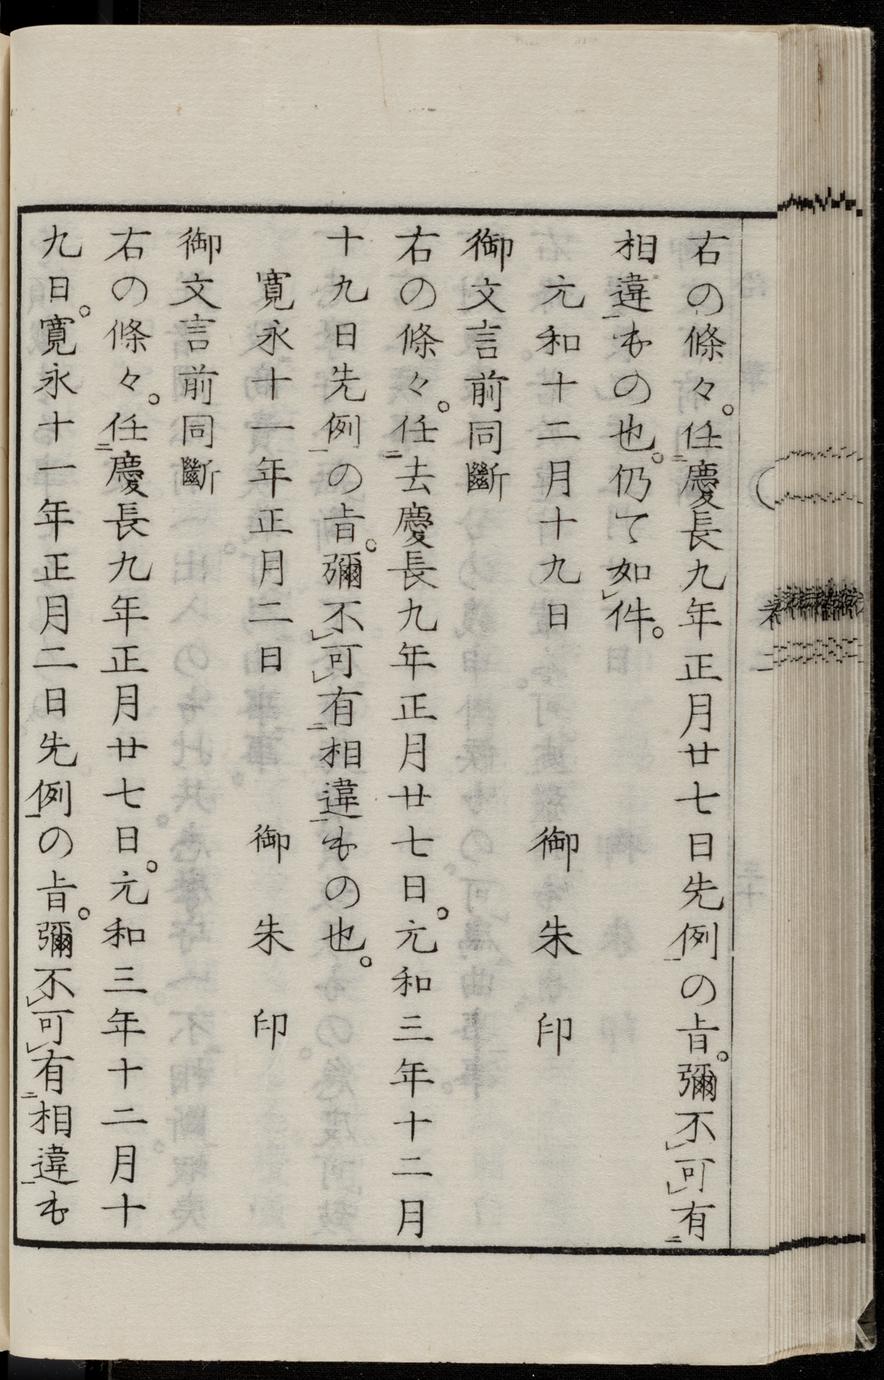 右の條々。任慶長九年正月廿七日先例の旨。彌不可有
相違もの也。仍て如件。
元和十二月十九日　御朱印
御文言前同斷
右の條々。任去慶長九年正月廿七日。元和三年十二月
十九日先例の旨。彌不可有相違もの也。
寛永十一年正月二日　御朱印
御文言前同斷
右の條々。任慶長九年正月廿七日。元和三年十二月十
九日。寛永十一年正月二日先例の旨。彌不可有相違も